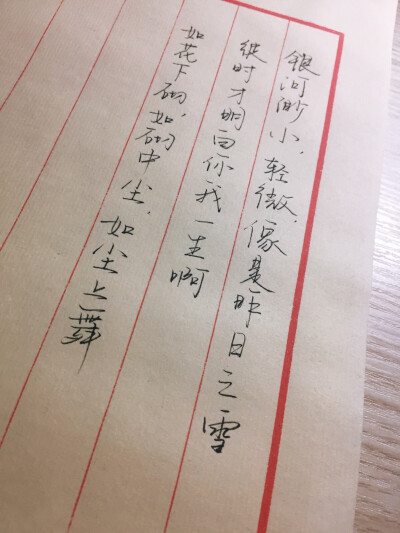 银河渺小,轻微,像是昨日之雪
彼时才明白你我一生啊
如花下砌,如砌中尘,如尘上舞